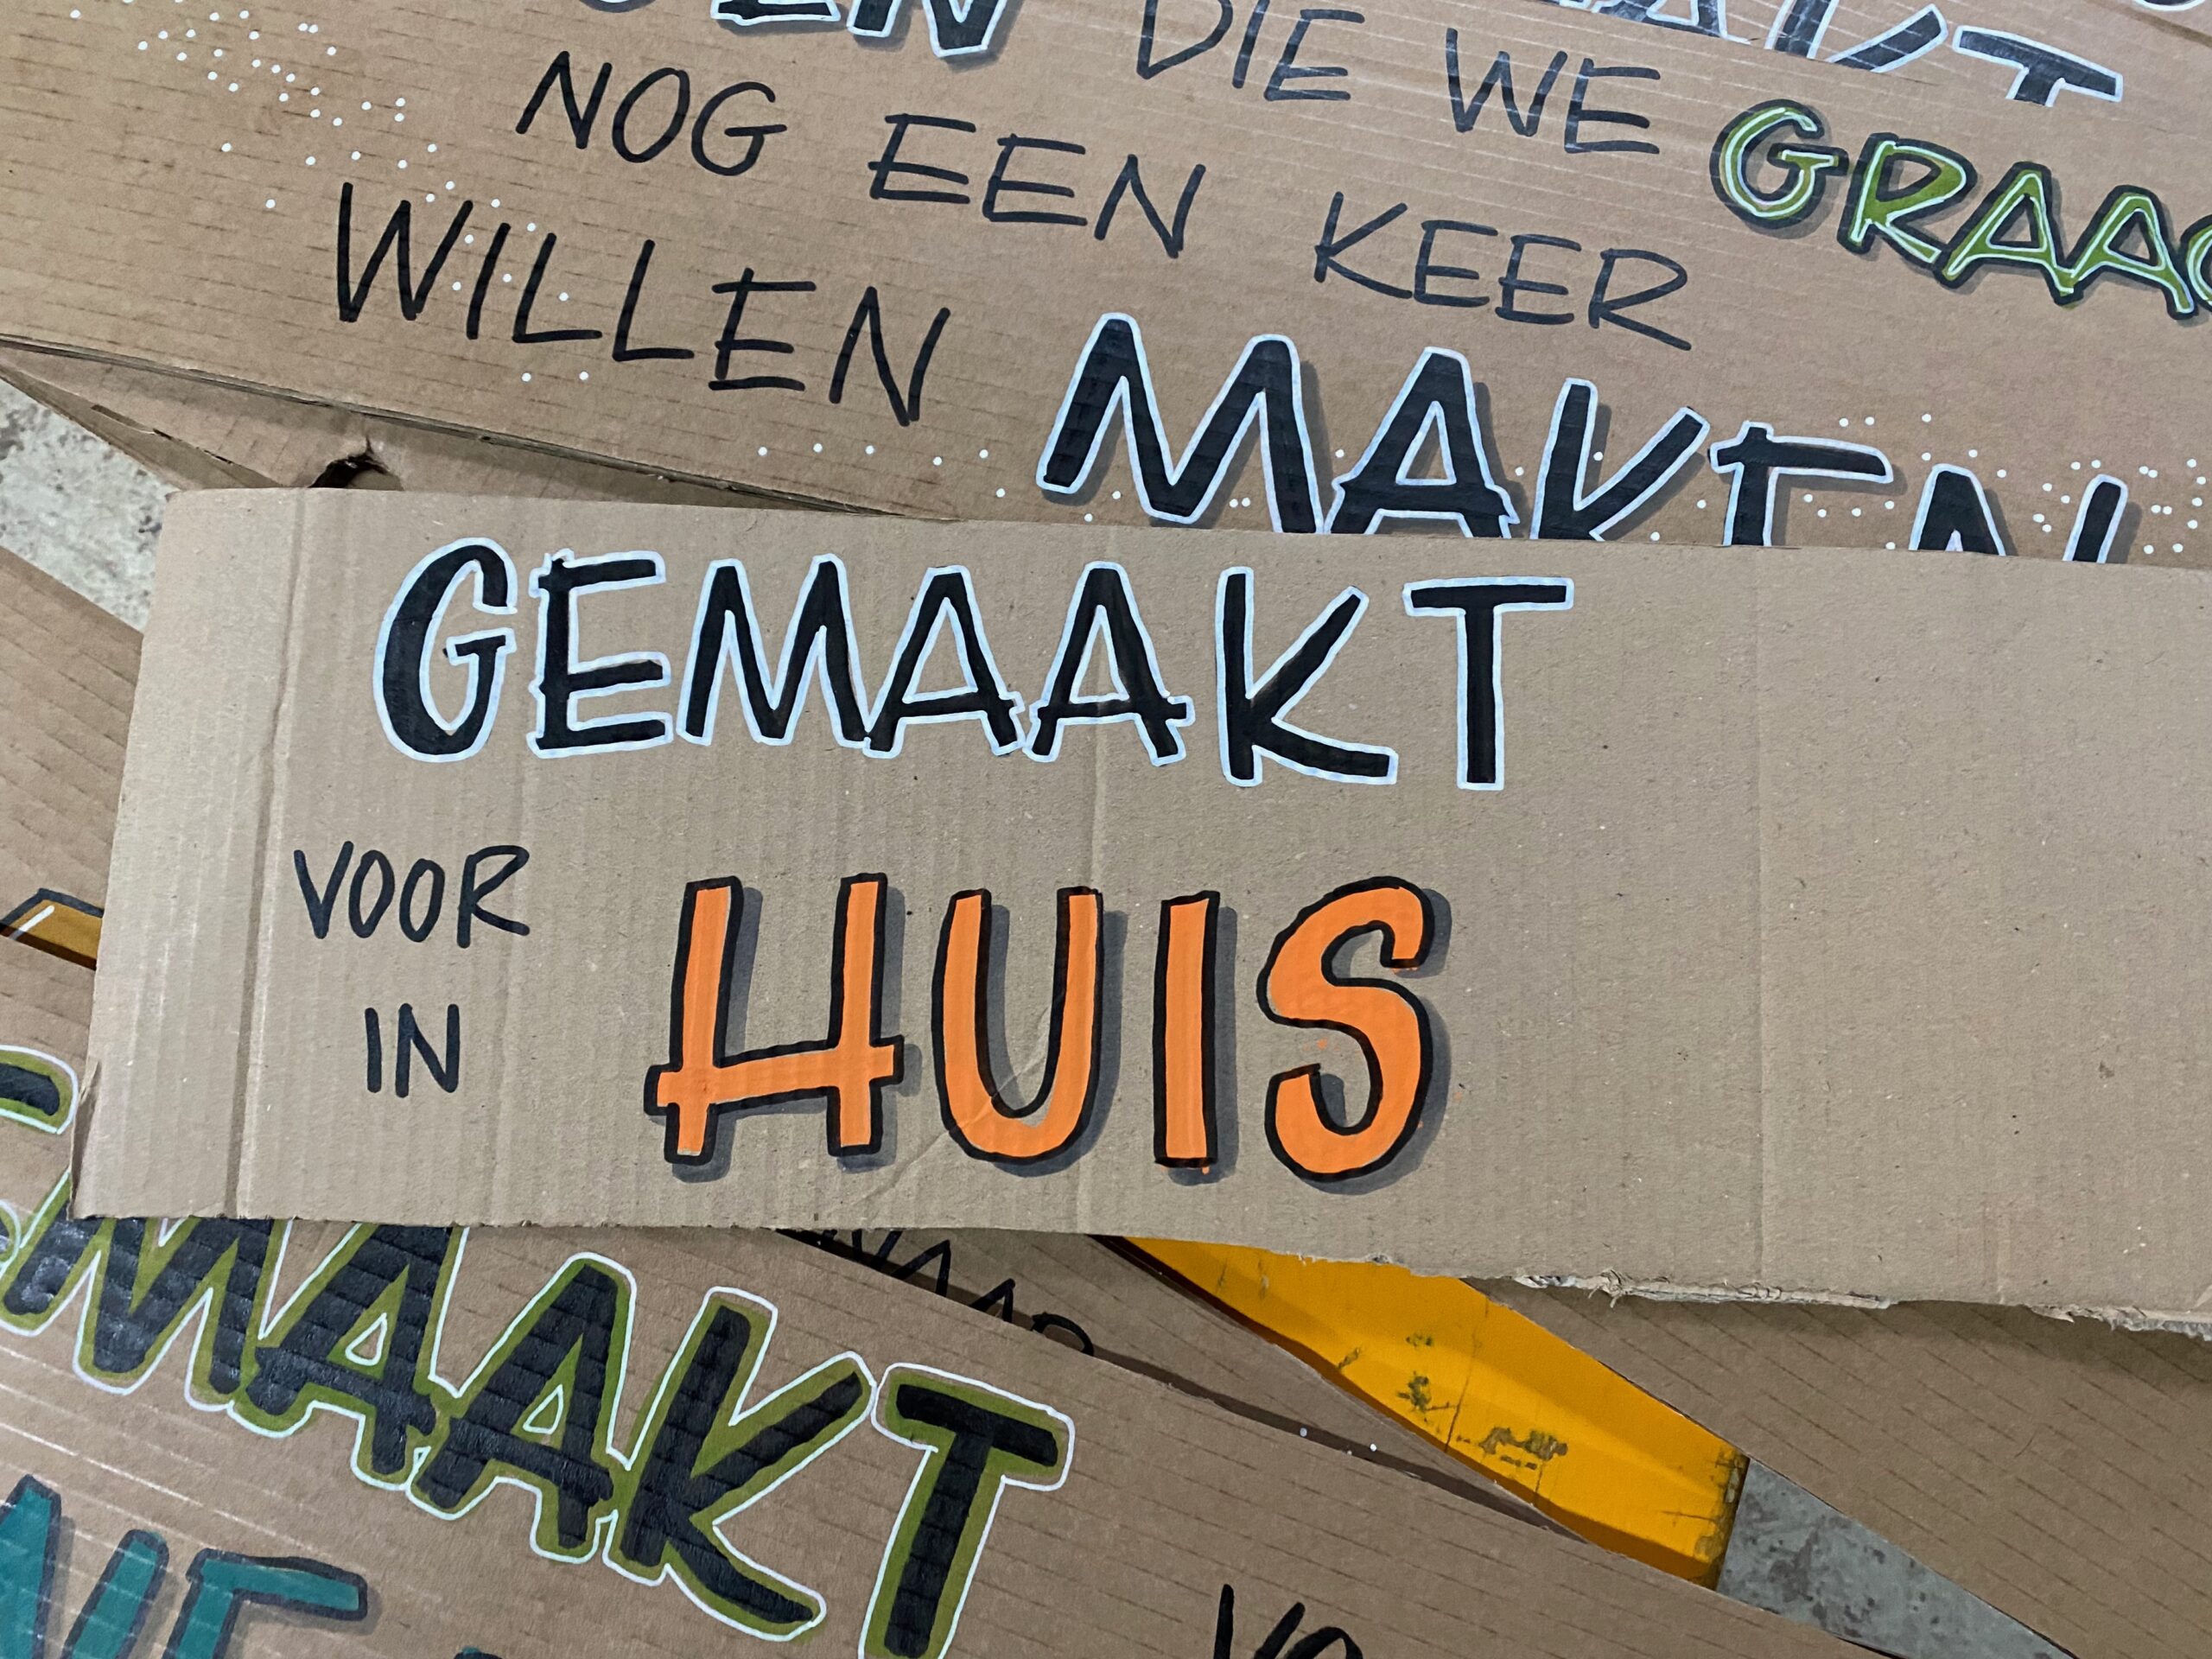 DIE WE GRAAG
NOG EEN KEER
WILLEN MAKEN
GEMAAKT
VOOR
IN HUIS
GEMAAKT